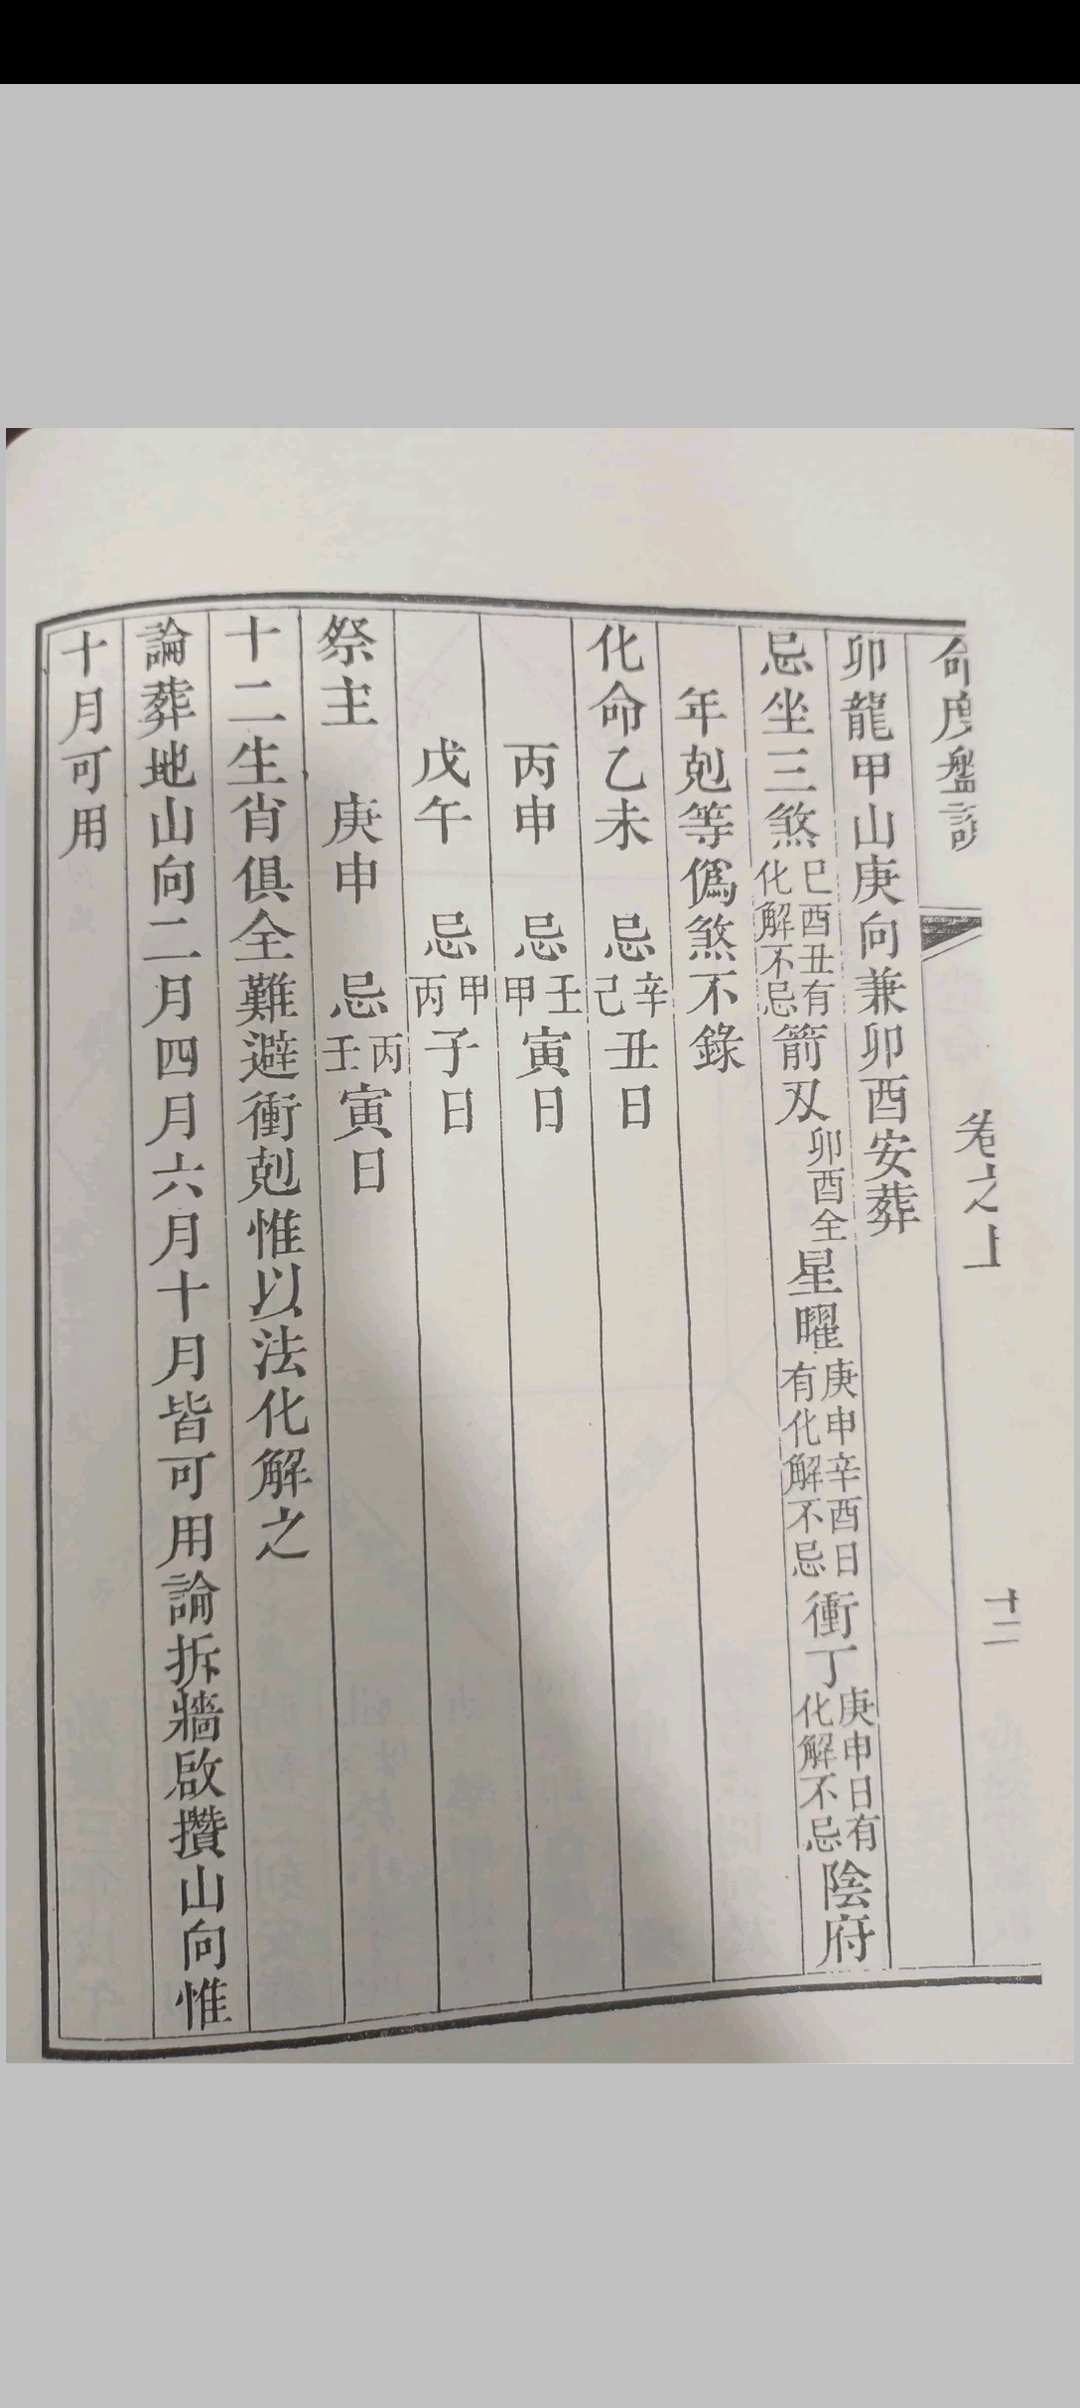 命度盤說　卷之上　十二
卯龍甲山庚向兼卯酉安葬
忌坐三煞巳酉丑有化解不忌箭刃卯酉全星曜庚申辛酉日有化解不忌衝丁庚申日有化解不忌陰府
年剋等僞煞不錄
化命乙未　忌辛己丑日
丙申　忌壬甲寅日
戊午　忌甲丙子日
祭主　庚申　忌丙壬寅日
十二生肖俱全難避衝剋惟以法化解之
論葬地山向二月四月六月十月皆可用論拆牆啟攢山向惟
十月可用